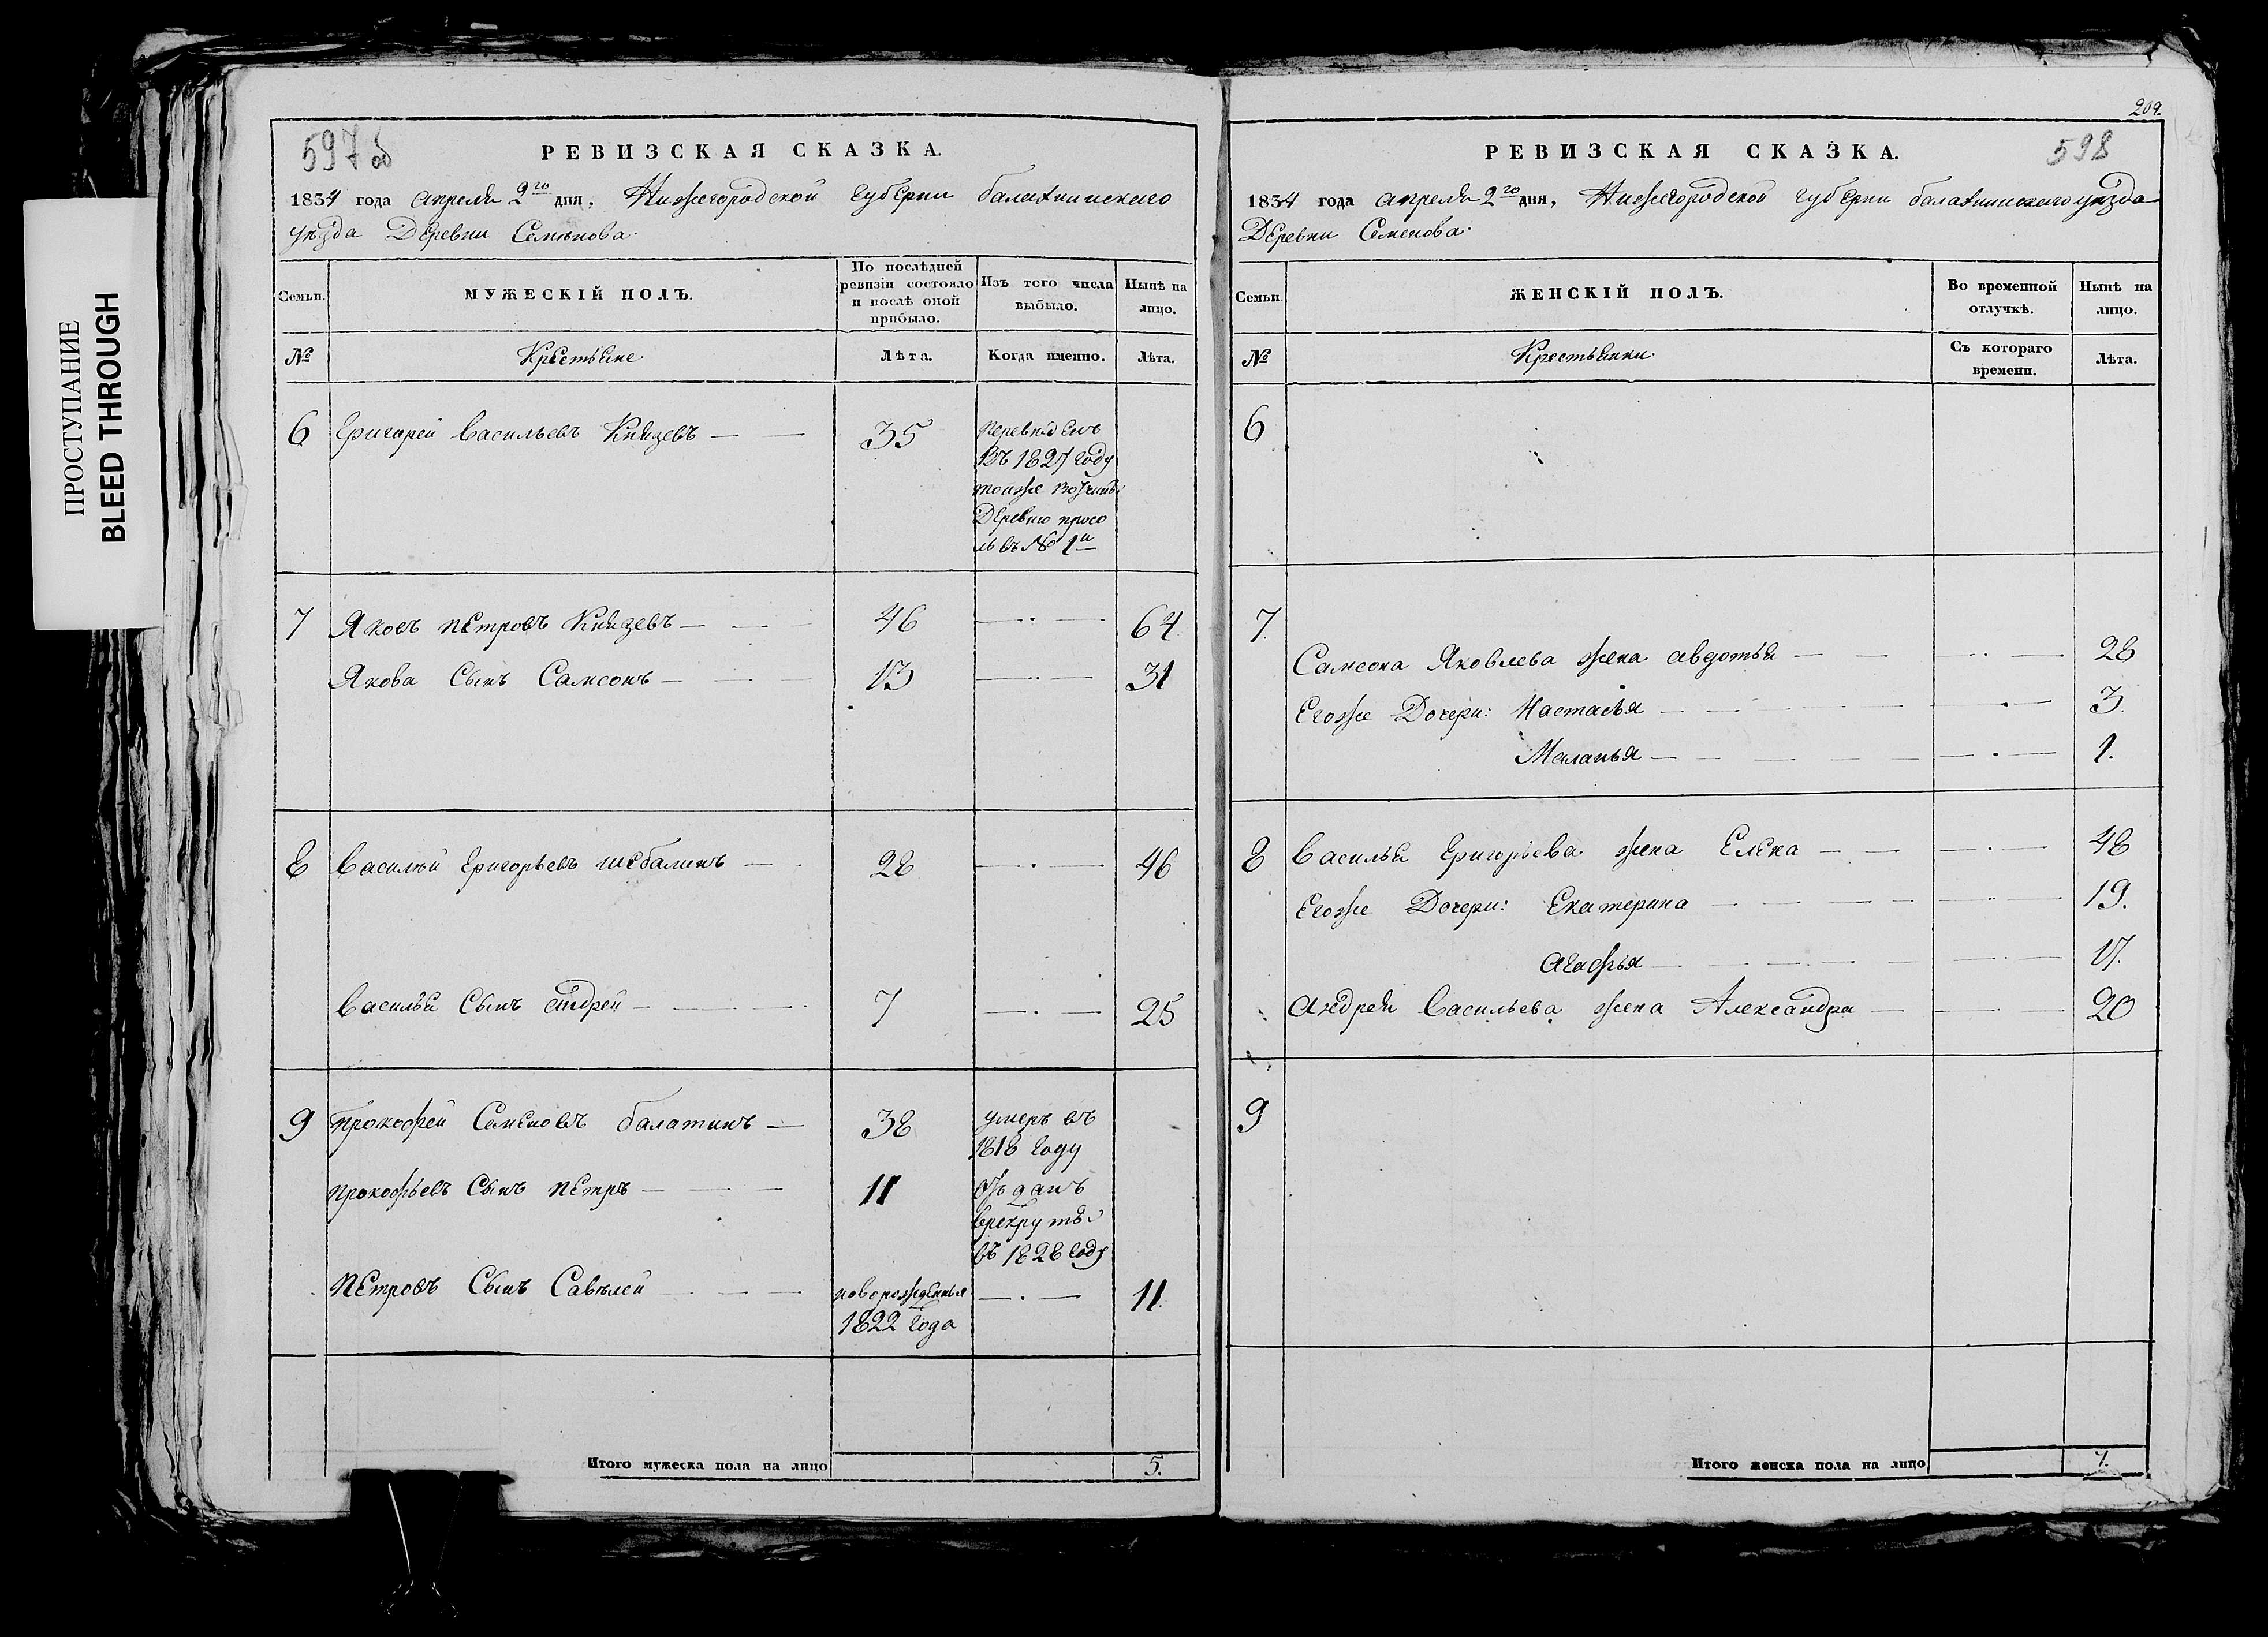 ПРОСТУПАНИЕ
BLEED THROUGH
597 об
РЕВИЗСКАЯ СКАЗКА.
1834 года апреля 2го дня, Нижегородской губерни балахнинскаго
уезда Деревни Семенова.
Семьи.
МУЖЕСКІЙ ПОЛЪ.
По послѣдней ревизіи состояло и послѣ оной прибыло.
Изъ того числа выбыло.
Нынѣ на лицо.
№
Крестьяне
Лѣта.
Когда именно.
Лѣта.
6 Григорей Васильевъ Князевъ — — 35
переведенъ
въ 1827 году
тоиже вотчины
Деревню
въ № 1й
7 Яковъ Петровъ Князевъ — — 46 — . — 64
Якова Сынъ Самсонъ — — 13 — . — 31
8 Василий Григорьевъ Шебалинъ — 28 — . — 46
Василья Сынъ андрей — — 7 — . — 25
9 Прокофей Семеновъ балатинъ — 38
умеръ въ
1818 году
Прокофьевъ Сынъ Петръ — — 11
отъданъ
врекруты
въ 1828 году
Петровъ Сынъ Савелей — — новорожденъ — . — 11.
1822 года
Итого мужеска пола на лицо 5.
209.
598
РЕВИЗСКАЯ СКАЗКА.
1834 года апреля 2го дня, Нижегородской губерни балахнинскаго уезда
Деревни Семенова.
Семьи
ЖЕНСКІЙ ПОЛЪ.
Во временной отлучкѣ.
Нынѣ на лицо.
№
Крестьянки
Съ котораго времени.
Лѣта.
6
7.
Самсона Яковлева жена авдотья — — 28
Егоже Дочери: Настасья — — 3.
Маланья — — 1.
8 Василья Григорьева жена Елена — — 48
Егоже Дочери: Екатерина — — 19.
агафья — — 17.
андрея Васильева жена Александра — — 20
9
Итого женска пола на лицо 7.